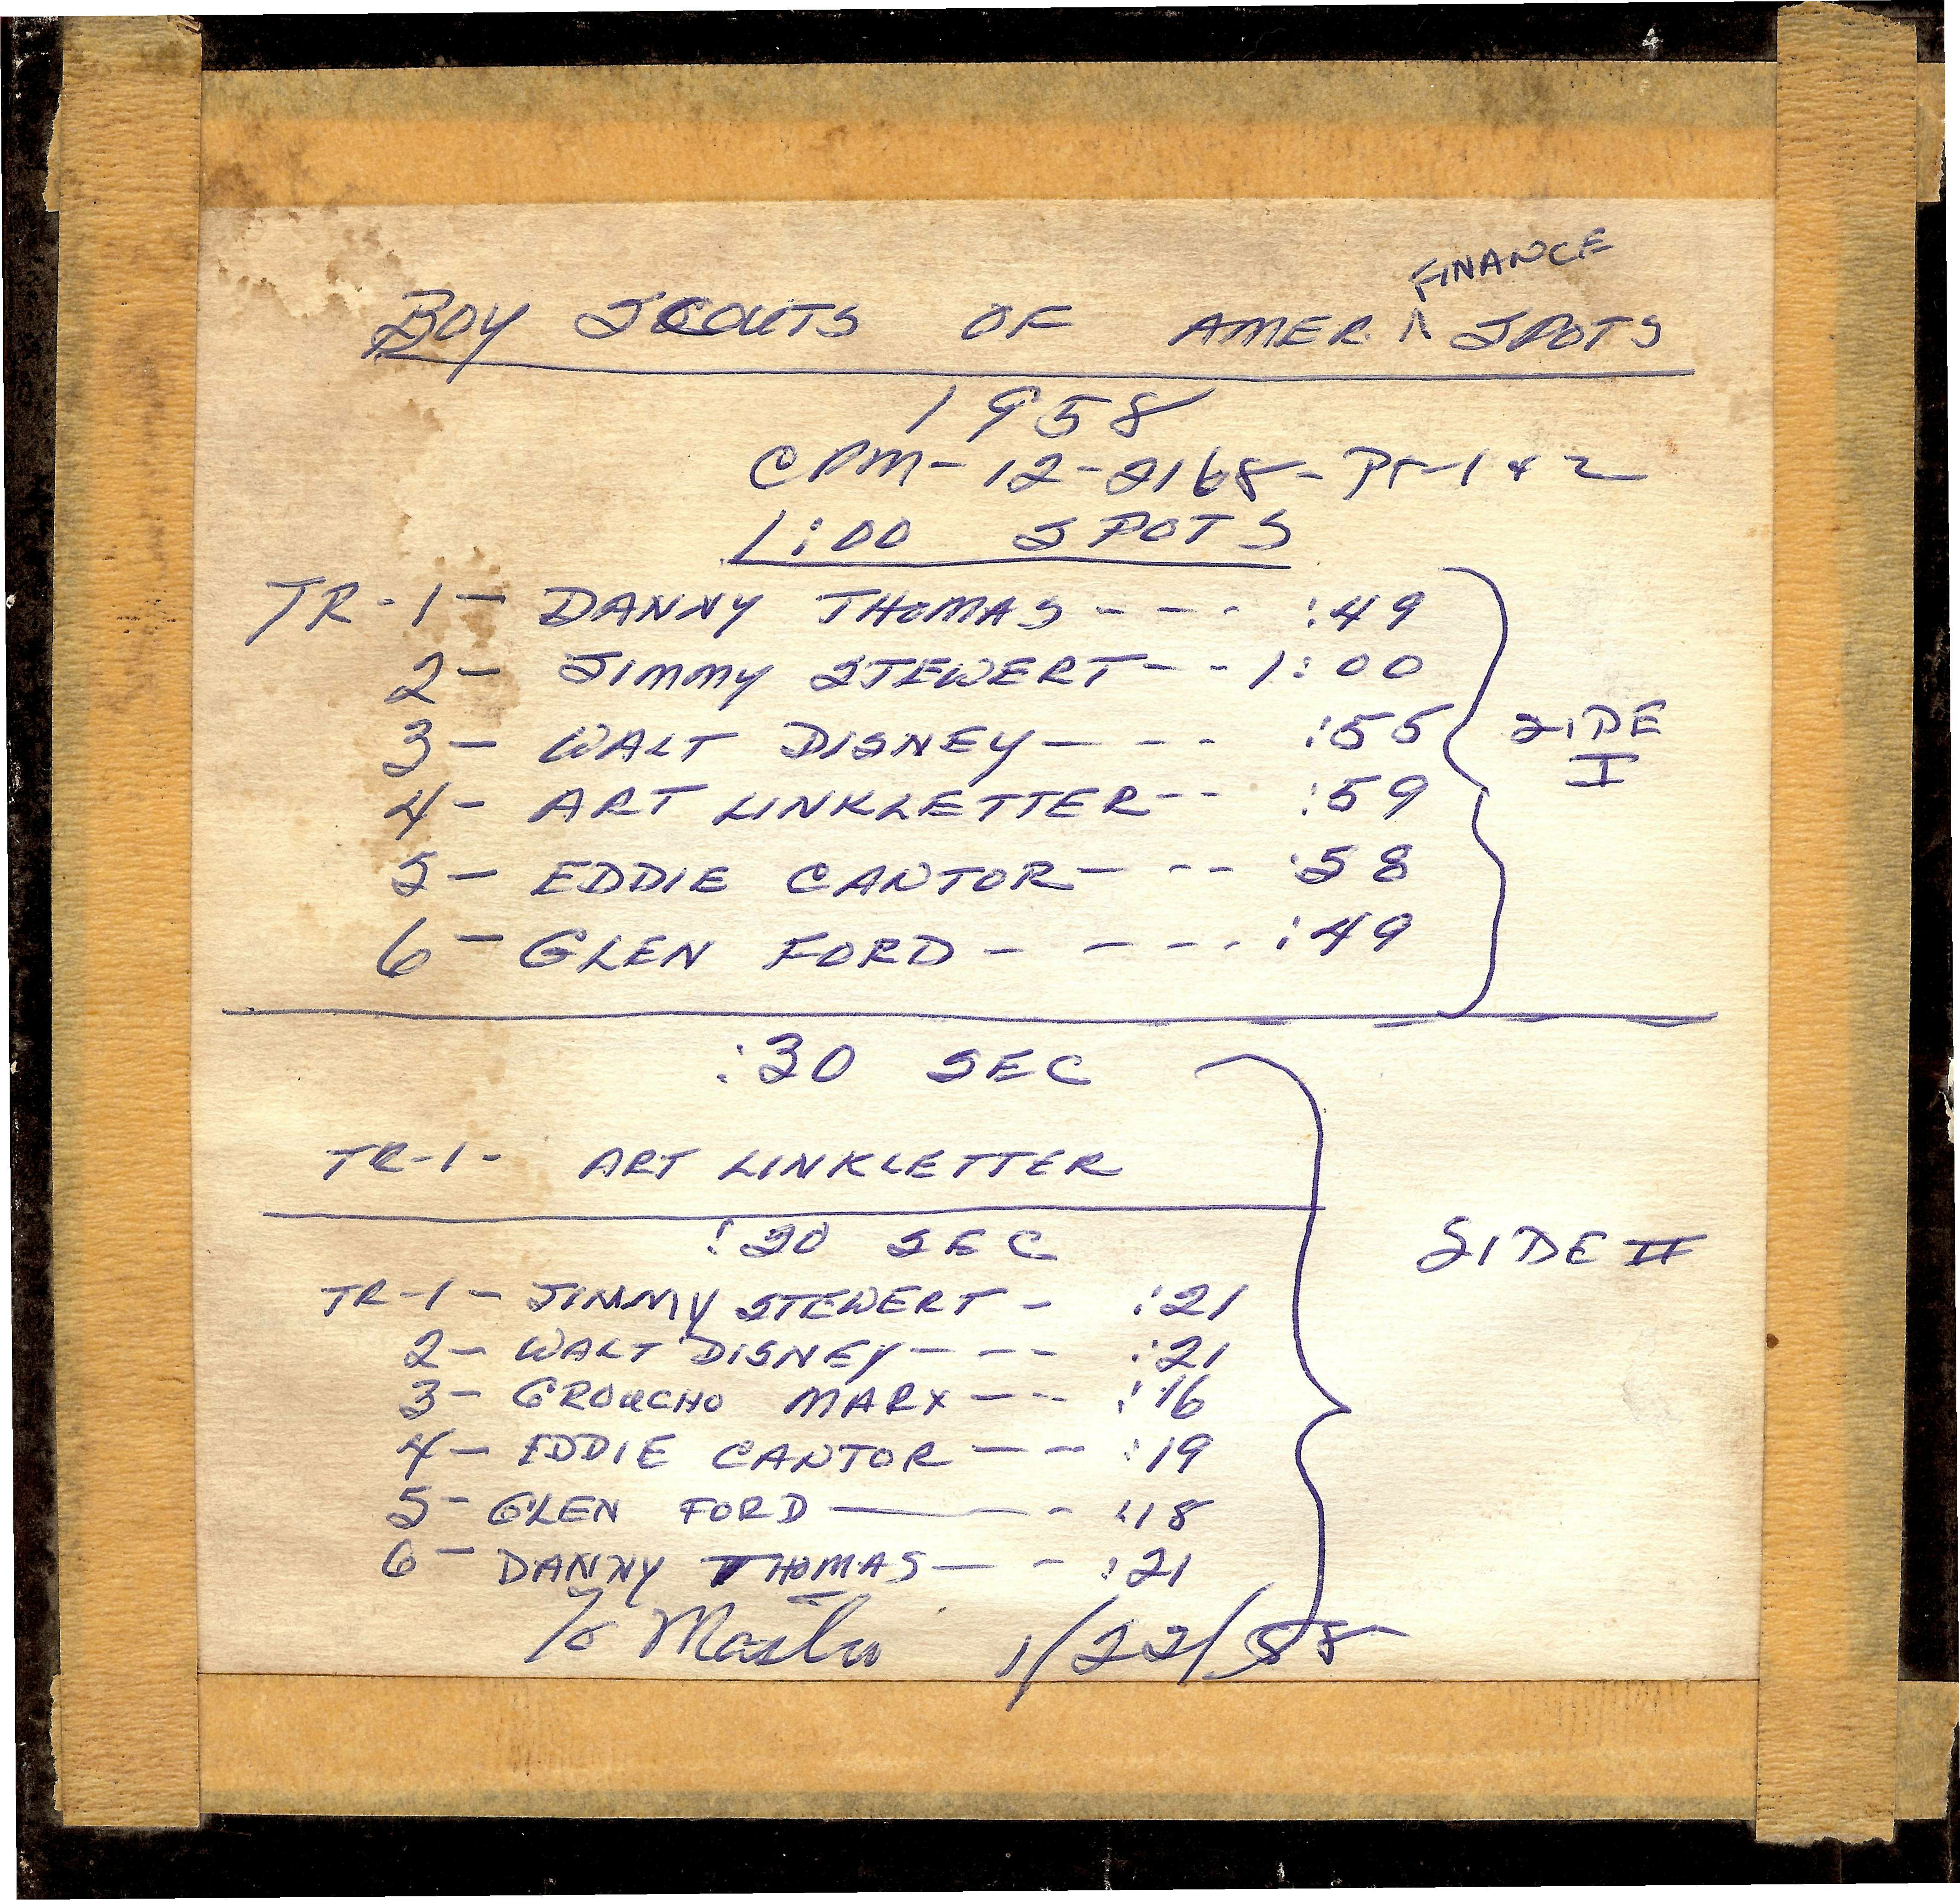 FINANCE
BOY SCOUTS OF AMER. ^ SPOTS
1958
CPM-12-2168-PT-1 & 2
1:00 SPOTS
TR-1- DANNY THOMAS --- :49
2- JIMMY STEWERT -- 1:00
3- WALT DISNEY --- :55
4- ART LINKLETTER -- :59
5- EDDIE CANTOR --- :58
6- GLEN FORD ---- :49
SIDE
I
:30 SEC
TR-1- ART LINKLETTER
:20 SEC
SIDE II
TR-1- JIMMY STEWERT - :21
2- WALT DISNEY --- :21
3- GROUCHO MARX -- :16
4- EDDIE CANTOR -- :19
5- GLEN FORD --- :18
6- DANNY THOMAS -- :21
1/22/58